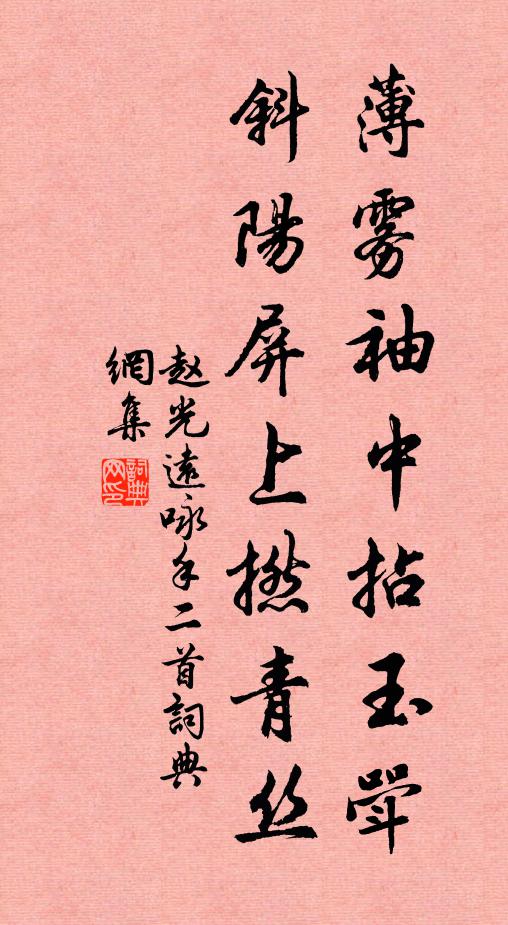 薄雾袖中拈玉斝
斜陽屏上撚青丝
赵光遠咏手二首詞典
網集
詞典
网印